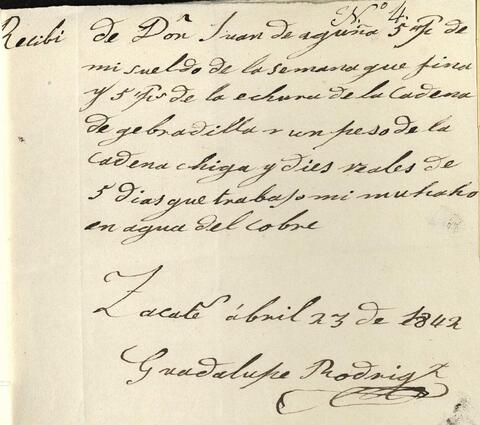 Nº 4.
Recibi de Don Juan de aguña 5 ps de
mi sueldo de la semana que fina
y 5 ps de la echura de la Cadena
de gebradilla y un peso de la
Cadena chiga y dies reales de
5 dias que trabajo mi muhaho
en agua del Cobre
Zacats ábril 23 de 1842
Guadalupe Rodrigz